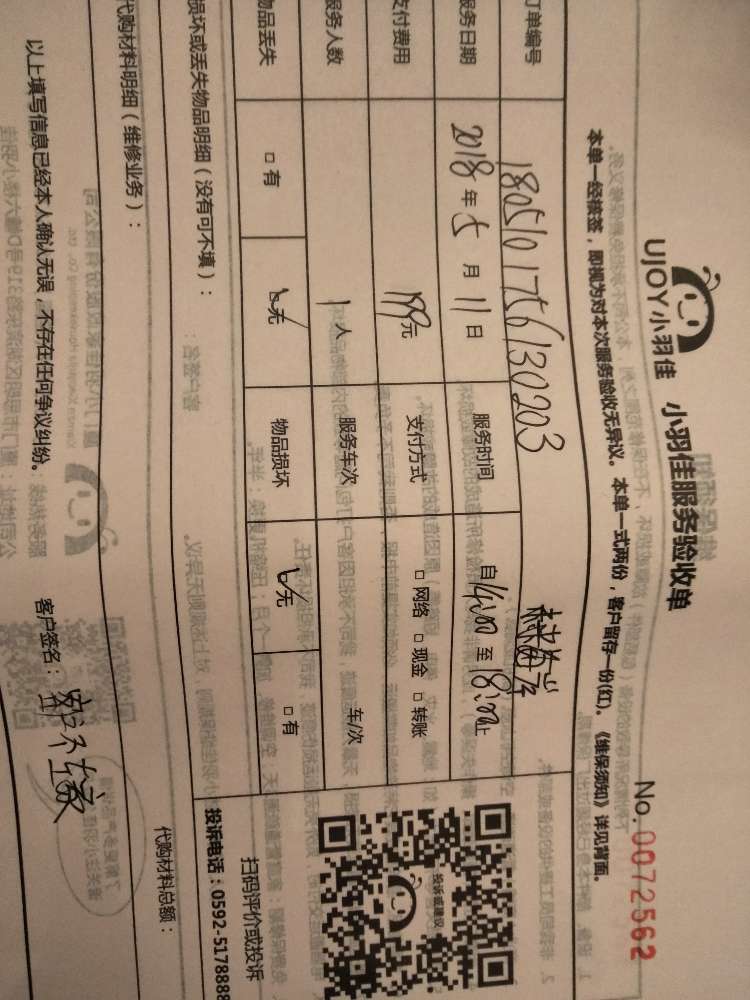 UJOY小羽佳 小羽佳服务验收单
No. 0072562
本单一经核签，即视为对本次服务验收无异议。本单一式两份，客户留存一份(红)。《维保须知》详见背面。
订单编号 1805101756130203
服务日期 2018年5月11日 服务时间 自14:00至18:00止
支付费用 199元 支付方式 □网络 □现金 □转账
服务人数 1人 服务车次 车/次
物品丢失 □有 □无 物品损坏 □无 □有
投诉或建议
扫码评价或投诉
投诉电话：0592-5178888
损坏或丢失物品明细（没有可不填）：
代购材料明细（维修业务）： 代购材料总额：
以上填写信息已经本人确认无误，不存在任何争议纠纷。 客户签名：